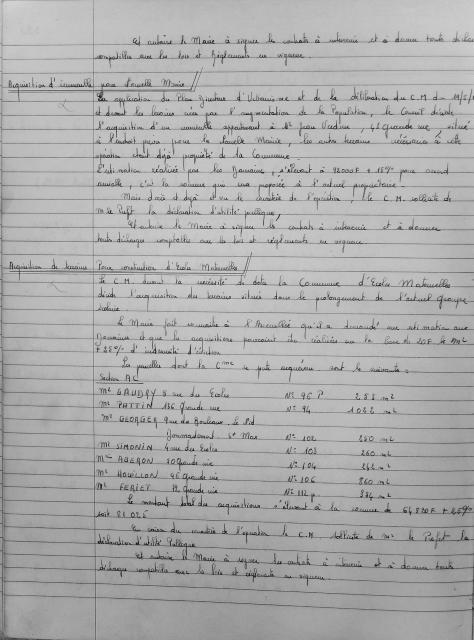 Et autorise le Maire à signer les contrats à intervenir et à donner toute décharge
comptables avec les lois et Réglements en vigueur.
Acquisition d'immeuble pour Nouvelle Mairie
En application du Plan Directeur d'Urbanisme et de la délibération du C.M du
et devant les besoins créés par l'augmentation de la Population, le Conseil décide
l'acquisition d'un immeuble appartenant à Mr Jean 48 Grande rue, situé
à l'endroit prévu pour la Nouvelle Mairie, les autres terrains nécessaires à cette
opération étant déjà propriété de la Commune.
L'estimation réalisée par les Domaines, s'élevant à 92000F + 15% pour accord
amiable, c'est la somme que sera proposée à l'actuel propriétaire.
Mais d'ores et déjà et vu le caractère de l'opération, le C.M. sollicite de
Mr le Préfet la déclaration d'utilité publique,
Et autorise le Maire à signer les contrats à intervenir et à donner
toute décharge comptables avec les lois et réglements en vigueur.
Acquisition de terrains Pour construction d'Ecoles Maternelles
Le C.M. devant la nécessité de doter la Commune d'Ecoles Maternelles
décide l'acquisition du terrain située dans le prolongement de l'actuel Groupe
scolaire
Le Maire fait connaître à l'Assemblée qu'il a demandé une estimation aux
Domaines et que les acquisitions pourraient être réalisées sur la base de 20F le m2
+ 25% d'indemnité d'éviction
Les parcelles dont la Cme se porte acquéreur sont les suivantes:
Section AC
Mr GAUDRY 8 rue des Ecoles N° 96 P 288 m2
Mr PATTIN 136 Grande rue N° 94 1022 m2
Mr GEORGER 9 rue du Bouleaux, le Pid
Dommartemont, St Max N° 102 250 m2
Mr SIMONIN 4 rue des Ecoles N° 103 260 m2
Mme ADERON 80 Grande rue N° 104 242 m2
Mr HOUILLON 96 Grande rue N° 106 860 m2
Mr FERIET 112 Grande rue N° 112 p 324 m2
Le montant total des acquisitions s'élevant à la somme de 64 820 F + 25%
soit 81 025
En raison du caractère de l'opération le C.M. sollicite de Mr le Préfet la
déclaration d'utilité Publique
Et autorise le Maire à signer les contrats à intervenir et à donner toute
décharge comptables avec les lois et réglements en vigueur.